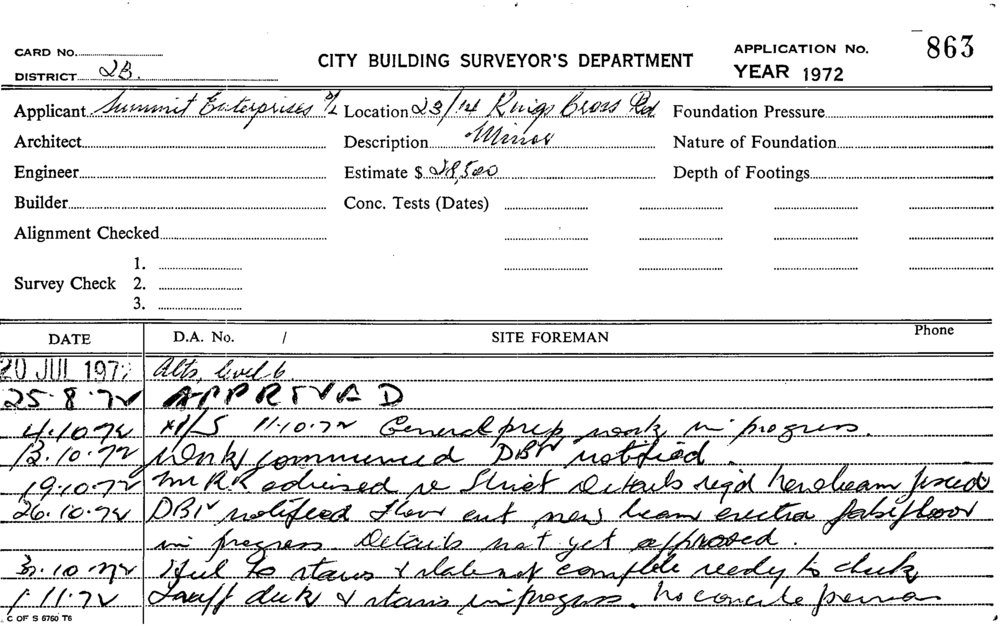 CARD No.
DISTRICT 2B.
CITY BUILDING SURVEYOR'S DEPARTMENT
APPLICATION No. 863
YEAR 1972
Applicant Summit Enterprises P/L Location 23/ Kings Cross Rd Foundation Pressure
Architect Description Minor Nature of Foundation
Engineer Estimate $ 28,500 Depth of Footings
Builder Conc. Tests (Dates)
Alignment Checked
Survey Check 1.
2.
3.
DATE D.A. No. / SITE FOREMAN Phone
20 JUL 1972 Alts, level 6
25.8.72 APPROVED
4.10.72 11.10.72 General prep work in progress.
13.10.72 Work commenced DBS notified.
19.10.72 Mr R.R advised re Struct details reqd
26.10.72 notified floor cut new beam
in progress. Details not yet approved.
10.72 Steel to stairs & slab not complete ready to check
1.11.72 deck & stairs in progress. No concrete
C OF S 6760 T6